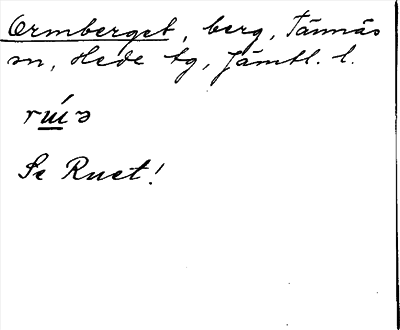 Ormberget, berg, Tännäs
sn, Hede tg, Jämtl. l.
rɯ́ə
Se Ruet!